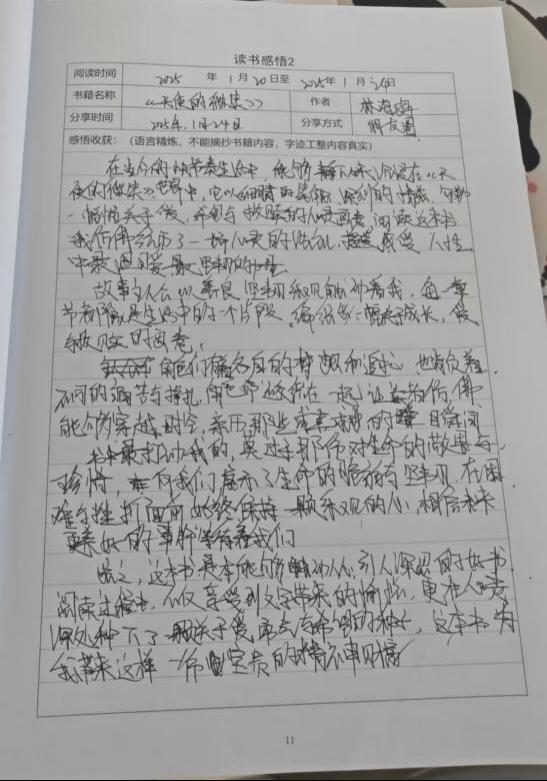 读书感悟2
阅读时间 2025 年 1 月 20 日至 2025 年 1 月 24 日
书籍名称 《天使的微笑》 作者 林海
分享时间 2025年 1月 24日 分享方式 朋友圈
感悟收获：（语言精炼，不能摘抄书籍内容，字迹工整内容真实）
在当今的快节奏生活中，能够 沉浸在《天
使的微笑》世界中，它以细腻的笔触 深刻的情感，勾勒
一幅幅关于爱，希望与救赎的心灵画卷 阅读这本书
我仿佛经历了一场心灵的洗礼， 感受人性
中最 坚韧的
故事主人公以善良 坚韧和乐观 着我，每一章
节都像是生活中的一个片段，编织出一幅关于成长，爱
与救赎的画卷。
他们 各自的梦想和 也背负着
不同的痛苦与挣扎 在一起，让我仿佛
能够穿越时空，亲历那些 的 瞬间
最打动我的，莫过于那份对生命的敬畏与
珍惜， 向我们展示了生命的脆弱与坚韧，在困
难与挫折面前 始终保持一颗乐观的心，相信未来
更美好的事 等待着我们
总之，这本书是本能够触动人心，引人深思的好书
阅读过程中，不仅享受到文字带来的愉悦，更在心灵
深处种下了一颗关于爱， 与希望的种子，这本书为
我带来这样一份 宝贵的精神财富
11